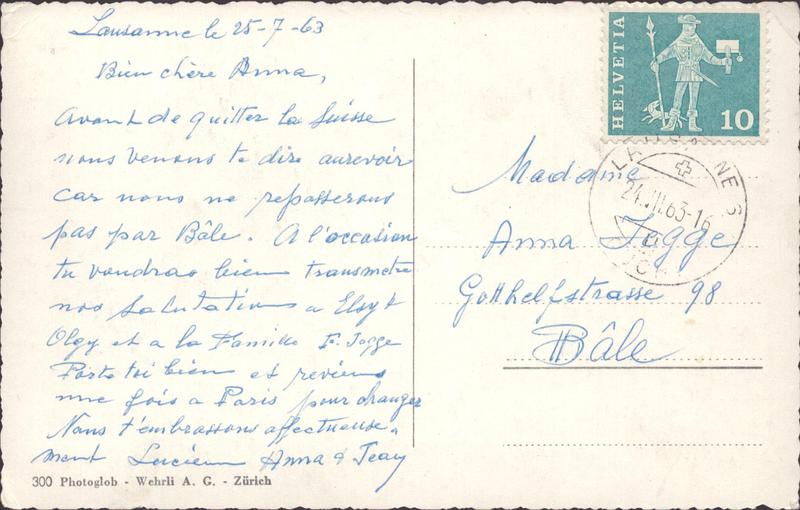 Lausanne le 25-7-63
Bien chère Anna,
Avant de quitter la Suisse
nous venons te dire aurevoir
car nous ne repasserons
pas par Bâle. A l'occasion
tu voudras bien transmetre
nos salutations a Elsy &
Olgy et a la Famille F. Jogge
Porte toi bien et reviens
une fois a Paris pour changer
Nous t'embrassons affectueuse-
ment Lucien Anna & Jeany
300 Photoglob - Wehrli A. G. - Zürich
HELVETIA
10
24.VII.63-16
Madame
Anna Jogge
Gotthelfstrasse 98
Bâle